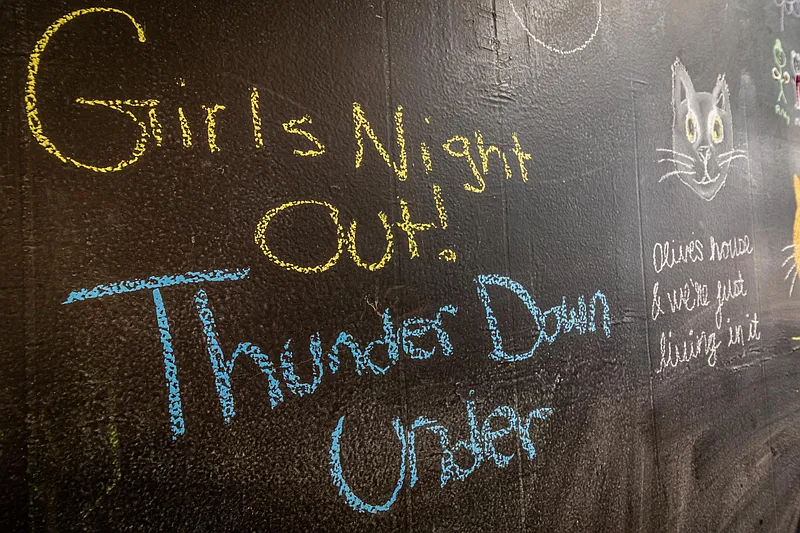 Girls Night
Out!
Thunder Down
Under
Olives house
& we're just
living in it